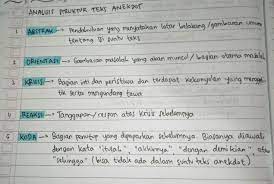 ANALISIS STRUKTUR TEKS ANEKDOT
1 ABSTRAK → Pendahuluan yang menyatakan latar belakang / gambaran umum
tentang isi suatu teks
2 ORIENTASI → Gambaran masalah yang akan muncul / bagian utama masalah
3 KRISIS → Bagian inti dari peristiwa dan terdapat kekonyolan yang
tik serta mengundang tawa
4 REAKSI → Tanggapan / respon atas krisis sebelumnya
5 KODA → Bagian penutup yang dipaparkan sebelumnya. Biasanya diawali
dengan kata "itulah", "akhirnya", "dengan demikian" atau
"sehingga" (bisa tidak ada dalam suatu teks anekdot)